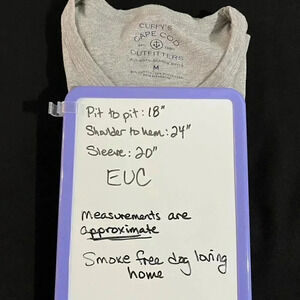 CUFFY'S
CAPE COD
OUTFITTERS
M
Pit to pit: 18"
Shoulder to hem: 24"
Sleeve: 20"
EUC
measurements are
approximate
Smoke free dog loving
home